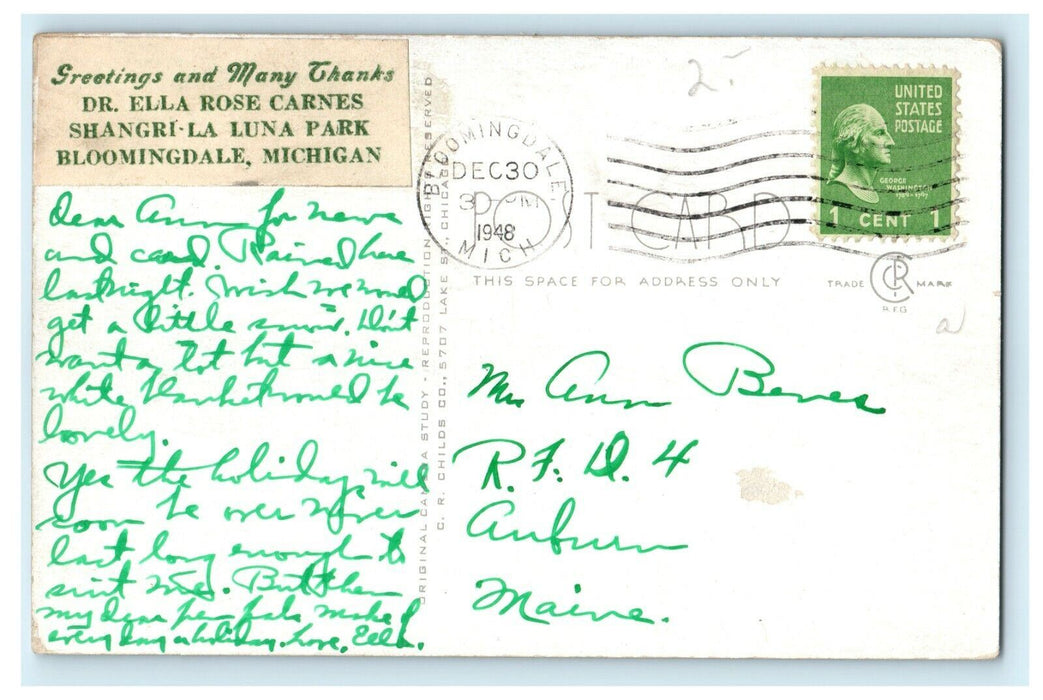 Greetings and Many Thanks
DR. ELLA ROSE CARNES
SHANGRI-LA LUNA PARK
BLOOMINGDALE, MICHIGAN
Dear Ann for news
and card. Rained here
last night. Wish we would
get a little snow. Don't
want a lot but a nice
white blanket would be
lovely.
Yes the holiday will
soon be over never
last long enough to
suit me. But then
my dear pen pals make
every day a holiday. Love, Ella.
ORIGINAL CAMERA STUDY - REPRODUCTION RIGHTS RESERVED
C. R. CHILDS CO., 5707 LAKE ST., CHICAGO
BLOOMINGDALE,
DEC 30
3 PM
1948
MICH
2.-
UNITED
STATES
POSTAGE
GEORGE
WASHINGTON
1789-1797
1 CENT 1
POST CARD
THIS SPACE FOR ADDRESS ONLY
TRADE CR MARK
R.F.G
a
Mrs Ann
R. F. D. 4
Auburn
Maine.